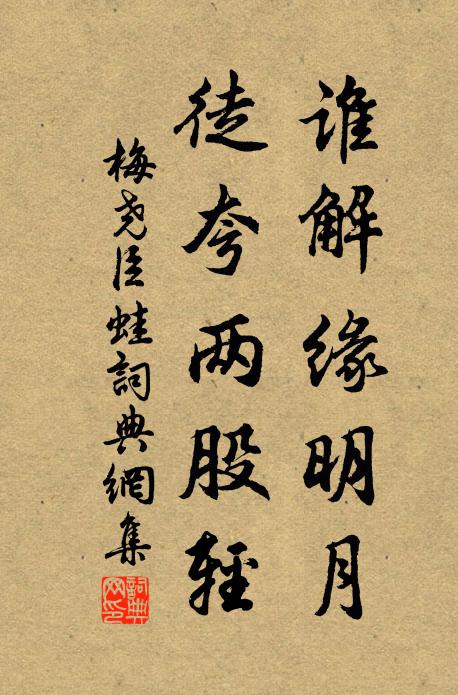 谁解缘明月
徒夸两股轻
梅尧臣蛙詞典網集
詞典网印